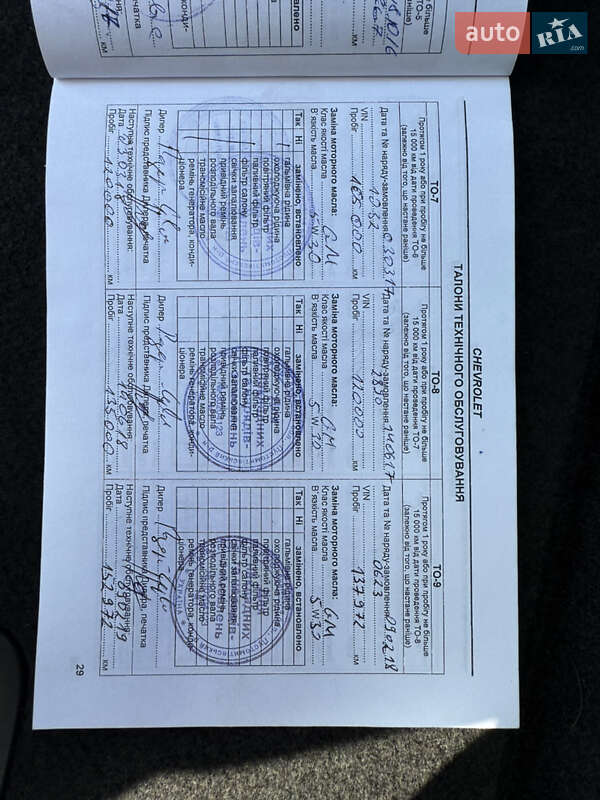 auto RIA .com
CHEVROLET
ТАЛОНИ ТЕХНІЧНОГО ОБСЛУГОВУВАННЯ
ТО-7
Протягом 1 року або при пробігу не більше
15 000 км від дати проведення ТО-6
(залежно від того, що настане раніше)
Дата та № наряду-замовлення 03.03.17
1032
VIN
Пробіг 105.000 км
Заміна моторного масла: GM
Клас якості масла
В'язкість масла 5W30
Так Ні замінено, встановлено
гальмівна рідина
охолоджуюча рідина
повітряний фільтр
паливний фільтр
фільтр салону
свічки запалювання
привідний ремінь
розподільного вала
трансмісійне масло
ремінь генератора, конди-
ціонера
Дилер
Підпис представника Дилера, печатка
Наступне технічне обслуговування:
Дата 03.03.18
Пробіг 120000 км
ТО-8
Протягом 1 року або при пробігу не більше
15 000 км від дати проведення ТО-7
(залежно від того, що настане раніше)
Дата та № наряду-замовлення 14.06.17
VIN
Пробіг 120000 км
Заміна моторного масла: GM
Клас якості масла
В'язкість масла 5W30
Так Ні замінено, встановлено
гальмівна рідина
охолоджуюча рідина
повітряний фільтр
паливний фільтр
фільтр салону
свічки запалювання
привідний ремінь
розподільного вала
трансмісійне масло
ремінь генератора, конди-
ціонера
Дилер
Підпис представника Дилера, печатка
Наступне технічне обслуговування:
Дата 14.06.18
Пробіг 135000 км
ТО-9
Протягом 1 року або при пробігу не більше
15 000 км від дати проведення ТО-8
(залежно від того, що настане раніше)
Дата та № наряду-замовлення 09.02.18
0623
VIN
Пробіг 137972 км
Заміна моторного масла: GM
Клас якості масла
В'язкість масла 5W30
Так Ні замінено, встановлено
гальмівна рідина
охолоджуюча рідина
повітряний фільтр
паливний фільтр
фільтр салону
свічки запалювання
привідний ремінь
розподільного вала
трансмісійне масло
ремінь генератора, конди-
ціонера
Дилер
Підпис представника Дилера, печатка
Наступне технічне обслуговування:
Дата 09.02.19
Пробіг 152972 км
29